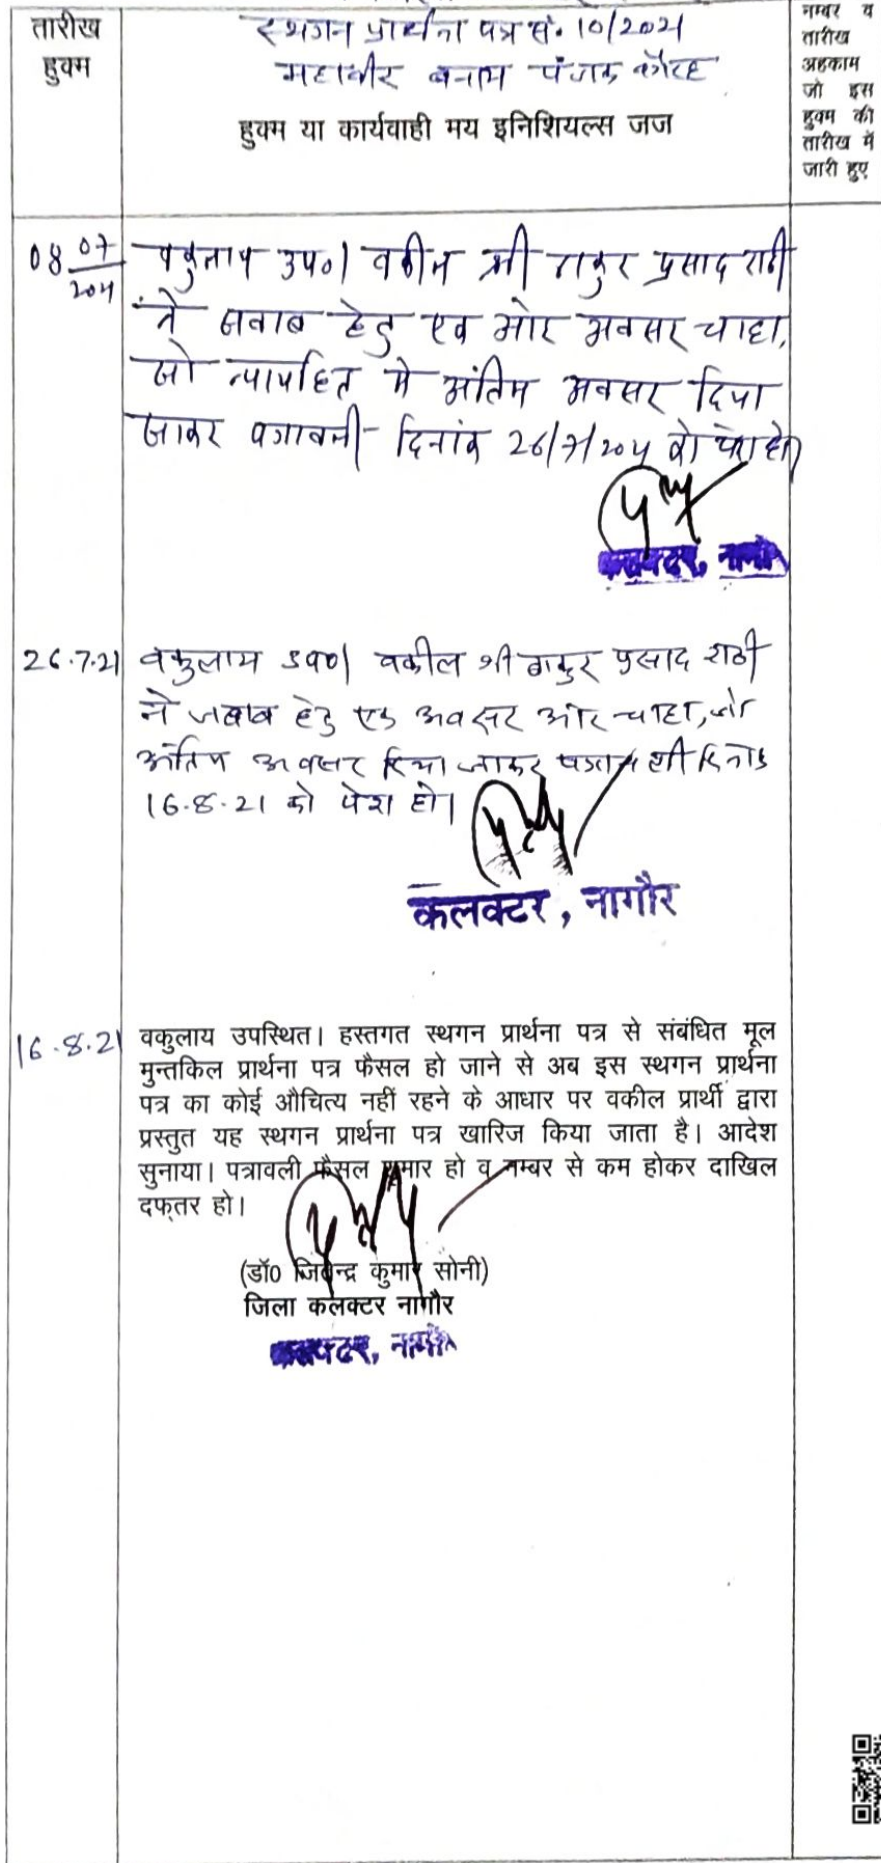 तारीख
हुक्म
स्थगन प्रार्थना पत्र सं. 10/2021
महावीर बनाम पंजाक वगैरह
हुक्म या कार्यवाही मय इनिशियल्स जज
नम्बर व
तारीख
अहकाम
जो इस
हुक्म की
तारीख में
जारी हुए
08 07/2021 वकुलाय उप०। वकील श्री ठाकुर प्रसाद राठी
ने जवाब हेतु एक और अवसर चाहा,
जो न्यायहित में अंतिम अवसर दिया
जाकर पत्रावली दिनांक 26/7/2021 को पेश हो।
कलक्टर, नागौर
26.7.21 वकुलाय उप०। वकील श्री ठाकुर प्रसाद राठी
ने जवाब हेतु एक अवसर और चाहा, जो
अंतिम अवसर दिया जाकर पत्रावली दिनांक
16.8.21 को पेश हो।
कलक्टर, नागौर
16.8.21 वकुलाय उपस्थित। हस्तगत स्थगन प्रार्थना पत्र से संबंधित मूल
मुन्तकिल प्रार्थना पत्र फैसल हो जाने से अब इस स्थगन प्रार्थना
पत्र का कोई औचित्य नहीं रहने के आधार पर वकील प्रार्थी द्वारा
प्रस्तुत यह स्थगन प्रार्थना पत्र खारिज किया जाता है। आदेश
सुनाया। पत्रावली फैसल शुमार हो व नम्बर से कम होकर दाखिल
दफ्तर हो।
(डॉ0 जितेन्द्र कुमार सोनी)
जिला कलक्टर नागौर
कलक्टर, नागौर